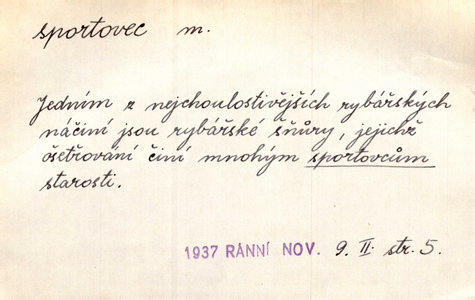 sportovec m.
Jedním z nejchoulostivějších rybářských
náčiní jsou rybářské šňůry, jejichž
ošetřování činí mnohým sportovcům
starosti.
1937 RANNÍ NOV. 9. II. str. 5.